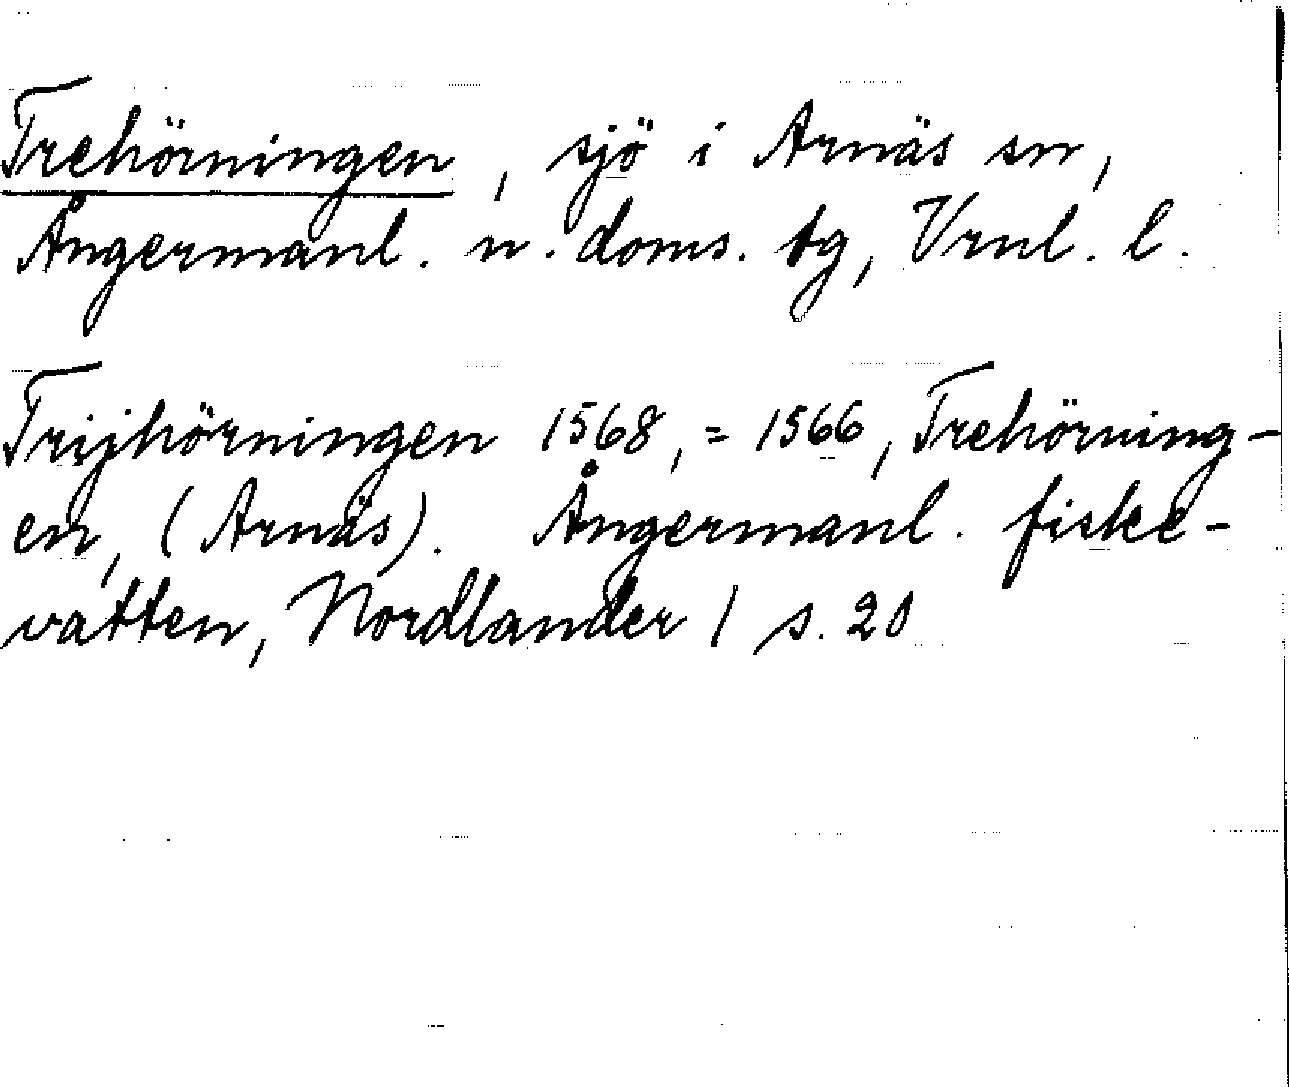 Trehörningen, sjö i Arnäs sn,
Ångermanl. n. doms. tg, Vrnl. l.
Trijhörningen 1568, = 1566, Trehörning-
en, (Arnäs). Ångermanl. fiske-
vatten, Nordlander 1 s. 20